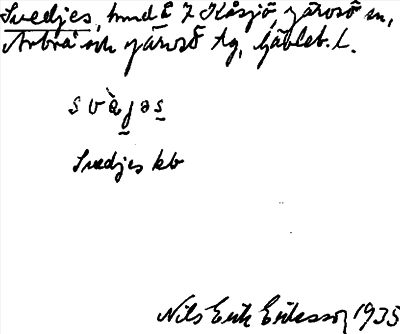 Svedjes, hmd å 7 Kåsjö, Järvsö sn,
Arbrå och Järvsö tg, Gävleb. l.
svàjəs
Svedjes kb
Nils Erik Eriksson 1935